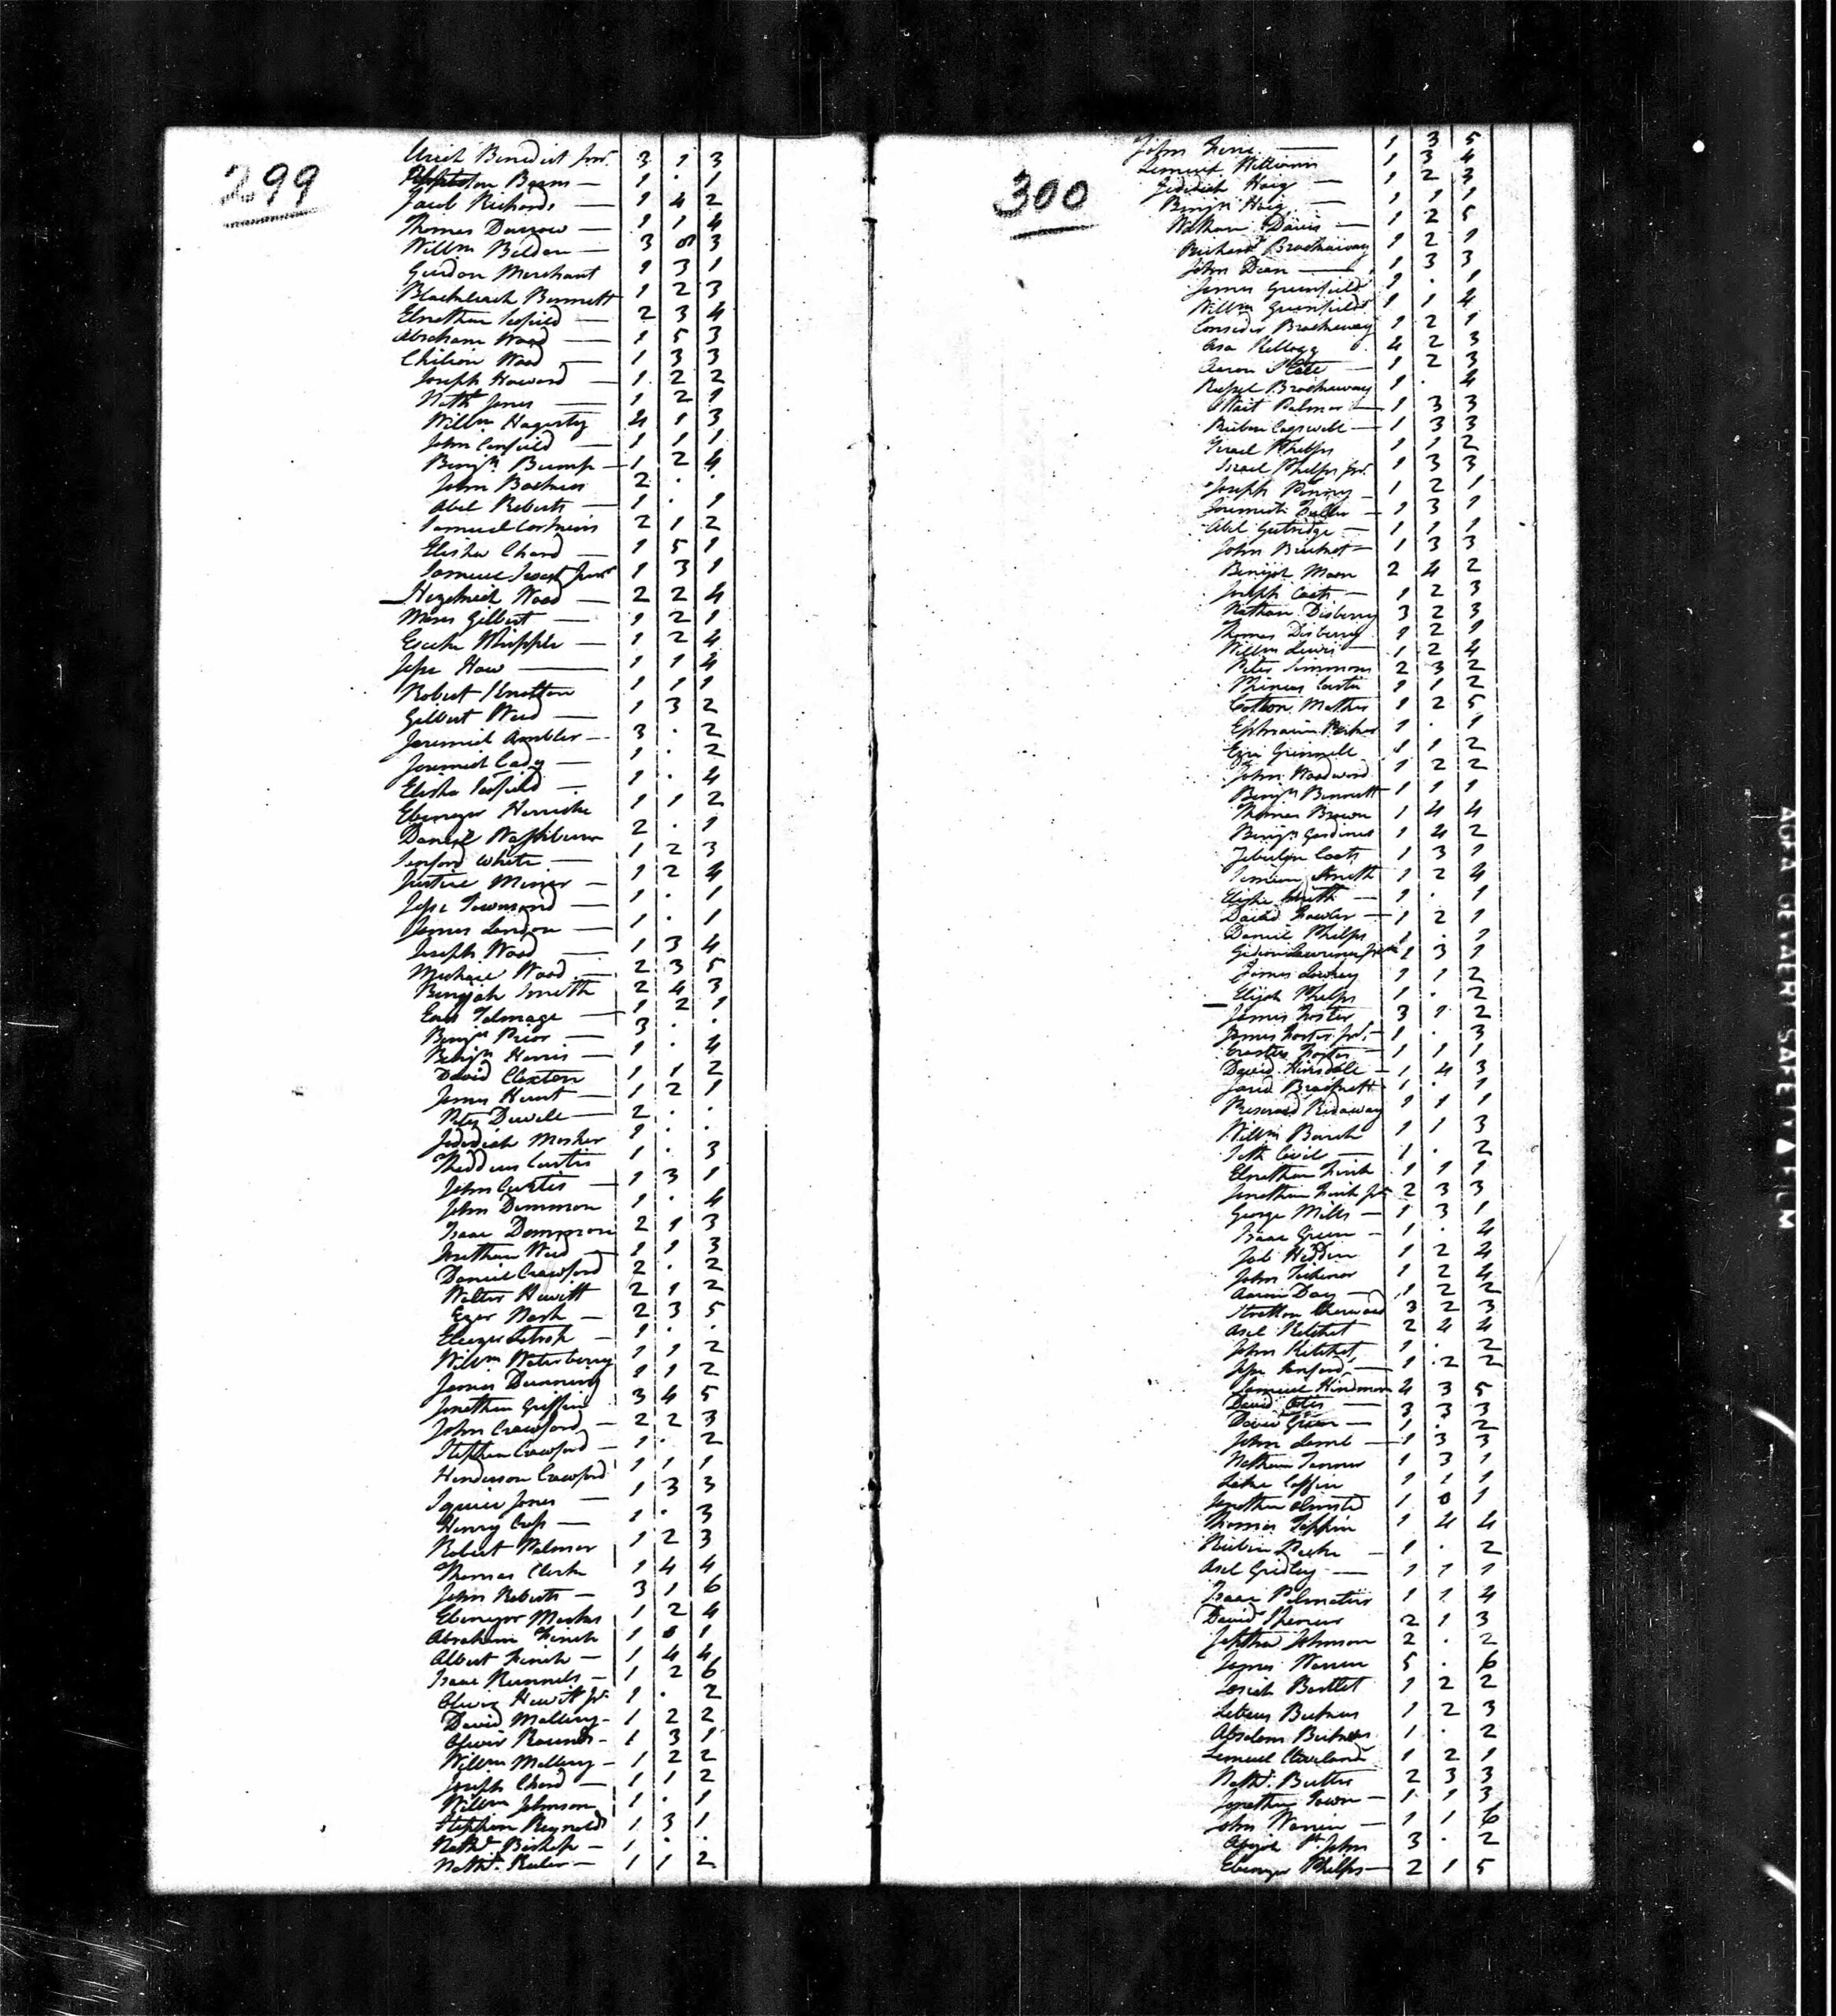 299
Uriah Benedict Junr. 3 1 3
Barns — 1 . 1
Jacob Richards — 1 4 2
Thomas Darrow — 1 1 4
Willm Beldon — 3 3
Gurdon Merchant 1 3 1
Blackleach Bennett 1 2 3
Elnathan Scofield — 2 3 4
Abraham Wood — 1 5 3
Chilion Wood — 1 3 3
Joseph Howard — 1 2 2
Nath Jones — 1 2 1
Willm Hagerty 4 1 3
John Canfield — 1 1 1
Benjn Bump — 1 2 4
John 2 . .
Abel Roberts — 1 . 1
Samuel 2 1 2
Elisha Chard — 1 5 1
Samuel Junr 1 3 1
Hezekiah Wood — 2 2 4
Moses Gilbert — 1 2 1
Whipple — 1 2 4
Jesse How — 1 1 4
Robert 1 1 1
Gilbert Weed — 1 3 2
Jeremiah Ambler — 3 . 2
Jeremiah Cady — 1 . 2
Elisha Scofield — 1 . 4
Ebenezer Herricke 1 1 2
Daniel Washburn 2 . 1
Sanford White — 1 2 3
Justice Minor — 1 2 4
Jesse Townsend — 1 . 1
James Landon — 1 . 1
Joseph Wood — 1 3 4
Michael Wood — 2 3 5
Benijah Smith 2 4 3
Enos Talmage — 1 2 1
Benjn Prior — 3 . .
Benjn Harris — 1 . 4
David Claxton 1 1 2
James Hunt — 1 2 1
Peter Duvall — 2 . .
Jedediah Mosher 1 . .
Thaddeus Curtis 1 . 3
John Curtis — 1 3 1
John Dammon 1 . 4
Isaac Dammon 2 1 3
Jonathan Weed — 1 1 3
Daniel Crawford 2 . 2
Walter Hewitt 2 1 2
Ezer Nash — 2 3 5
Eleazer — 1 . .
Willm Waterberry 1 1 2
James Dunning 1 1 2
Jonathan Griffin 3 4 5
John Crawford — 2 2 3
Stephen Crawford — 1 . 2
Henderson Crawford 1 1 1
Squire Jones — 1 3 3
Henry Cross — 1 . 3
Robert Palmer 1 2 3
Thomas Clerke 1 4 4
John Roberts — 3 1 6
Ebenezer 1 2 4
Abraham Finch 1 0 1
Albert Finch — 1 4 4
Isaac Runnels — 1 2 6
Oliver Hewitt Jr. 1 . 2
David Mallery — 1 2 2
Oliver Rounds — 1 3 1
Willm Mallery — 1 2 2
Joseph Chard — 1 1 2
Willm Johnson 1 . 1
Stephen Reynolds 1 3 1
Nathl. Bishop — 1 . .
Nathl. Keeler — 1 1 2
300
John — 1 3 5
Lemuel Williams 1 3 4
Jedidiah Haig — 1 2 3
Benjn Haig — 1 1 1
Nathan Davis — 1 2 5
Richard Brockaway 1 2 1
John Dean — 1 3 3
James Greenfield 1 . 1
Willm Greenfield 1 1 4
Consider Brockaway 1 2 1
Asa Kellogg 4 2 3
Aaron — 1 2 3
Russel Brockaway 1 . 4
Wait Palmer — 1 3 3
Reuben Cogswell — 1 3 3
Israel Phelps 1 1 2
Israel Phelps Jur. 1 3 3
Joseph — 1 2 1
Jeremiah Fuller — 1 3 1
Abel Gutridge — 1 1 1
John — 1 3 3
Benijah Mason 2 4 2
Joseph Coats — 1 2 3
Nathan Disberry 3 2 3
Thomas Disberry 1 2 1
Willm Lewis — 1 2 4
Peter Simmons 2 3 2
Phineas Carter 1 1 2
Cotton Mather 1 2 5
Ephraim 1 . 1
Ezra Grinnell 1 1 2
John Woodword 1 2 2
Benjn Bennett 1 1 1
Thomas Brown 1 4 4
Benjn Gardiner 1 4 2
Zebulon Coats 1 3 1
Simeon Smith 1 2 4
Elisha Smith — 1 . 1
David Fowler — 1 2 1
Daniel Phelps 1 . 1
Gideon Lawrence 1 3 1
James Lowrey 1 1 2
Elijah Phelps 1 . 2
James Foster 3 1 2
James Foster Jr. — 1 . 3
Erastus Foster — 1 1 1
David Hinsdale — 1 4 3
Jared Brackett 1 . 1
Preserved Ridaway 1 1 1
Willm Burch 1 1 3
Seth — 1 . 2
Elnathan Finch 1 1 1
Jonathan Finch Jr. 2 3 3
George Mills — 1 3 1
Isaac Green — 1 . 4
Job Hedden 1 2 4
John Tichenor 1 2 4
Aaron Day — 1 2 2
Stratton Sherwood 3 2 3
Asel Kitchel 2 4 4
John Kitchel 1 . 2
Jesse Sanford — 1 2 2
Samuel Hindman 4 3 5
David Otis — 3 3 3
David Green — 1 . 2
John Lamb — 1 3 3
Nathan Tanner 1 3 1
Luke Coffin 1 1 1
Jonathan Olmsted 1 0 1
Thomas Tappin 1 4 4
Reuben — 1 . 2
Asel Gridley — 1 1 1
Isaac Palmateer 1 1 4
David Spencer 2 1 3
Jeptha Johnson 2 . 2
James Warren 5 . 6
Josiah Bartlet 1 2 2
1 2 3
Absalom 1 . 2
Lemuel Cleveland 1 2 1
Nathl. Butler 2 3 3
Jonathan Town — 1 1 3
John Warren — 1 1 6
Abijah St. John 3 . 2
Ebenezer Phelps — 2 1 5
AGFA-GEVAERT SAFETY FILM